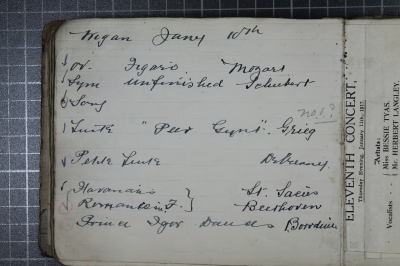 Wigan Jany 10th
Ov. Figaro Mozart
Sym Unfinished Schubert
Song
no 1?
Suite "Peer Gynt". Grieg
Petite Suite Debussy
Havanaise St. Saens
Romance in F. Beethoven
Prince Igor Dances Borodine
ELEVENTH CONCERT,
Thursday Evening, January 11th, 1917.
Artists:
Vocalists
Miss BESSIE TYAS.
Mr. HERBERT LANGLEY.